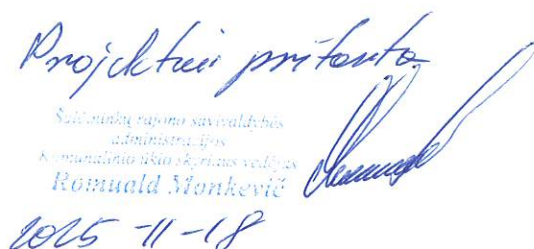 Projektui pritarta
Šalčininkų rajono savivaldybės
administracijos
Komunalinio ūkio skyriaus vedėjas
Romuald Monkevič
2025-11-18